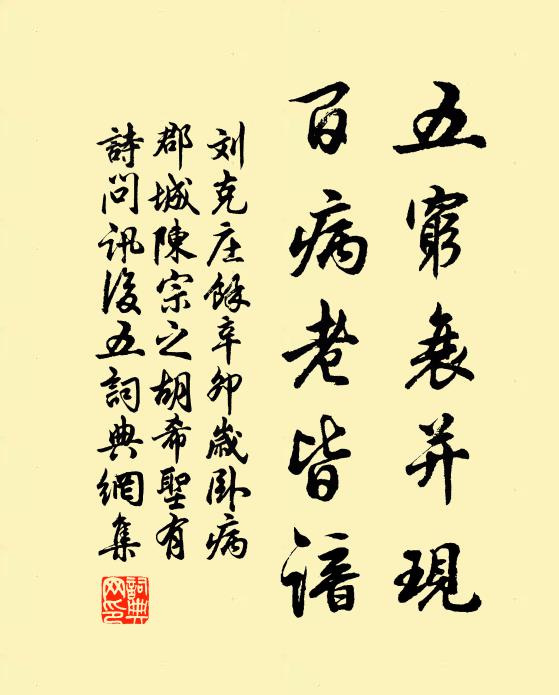 五窮衰并現
百病老皆諳
刘克庄餘辛卯歲卧病
郡城陳宗之胡希聖有
詩問訊後五詞典網集
詞典網印